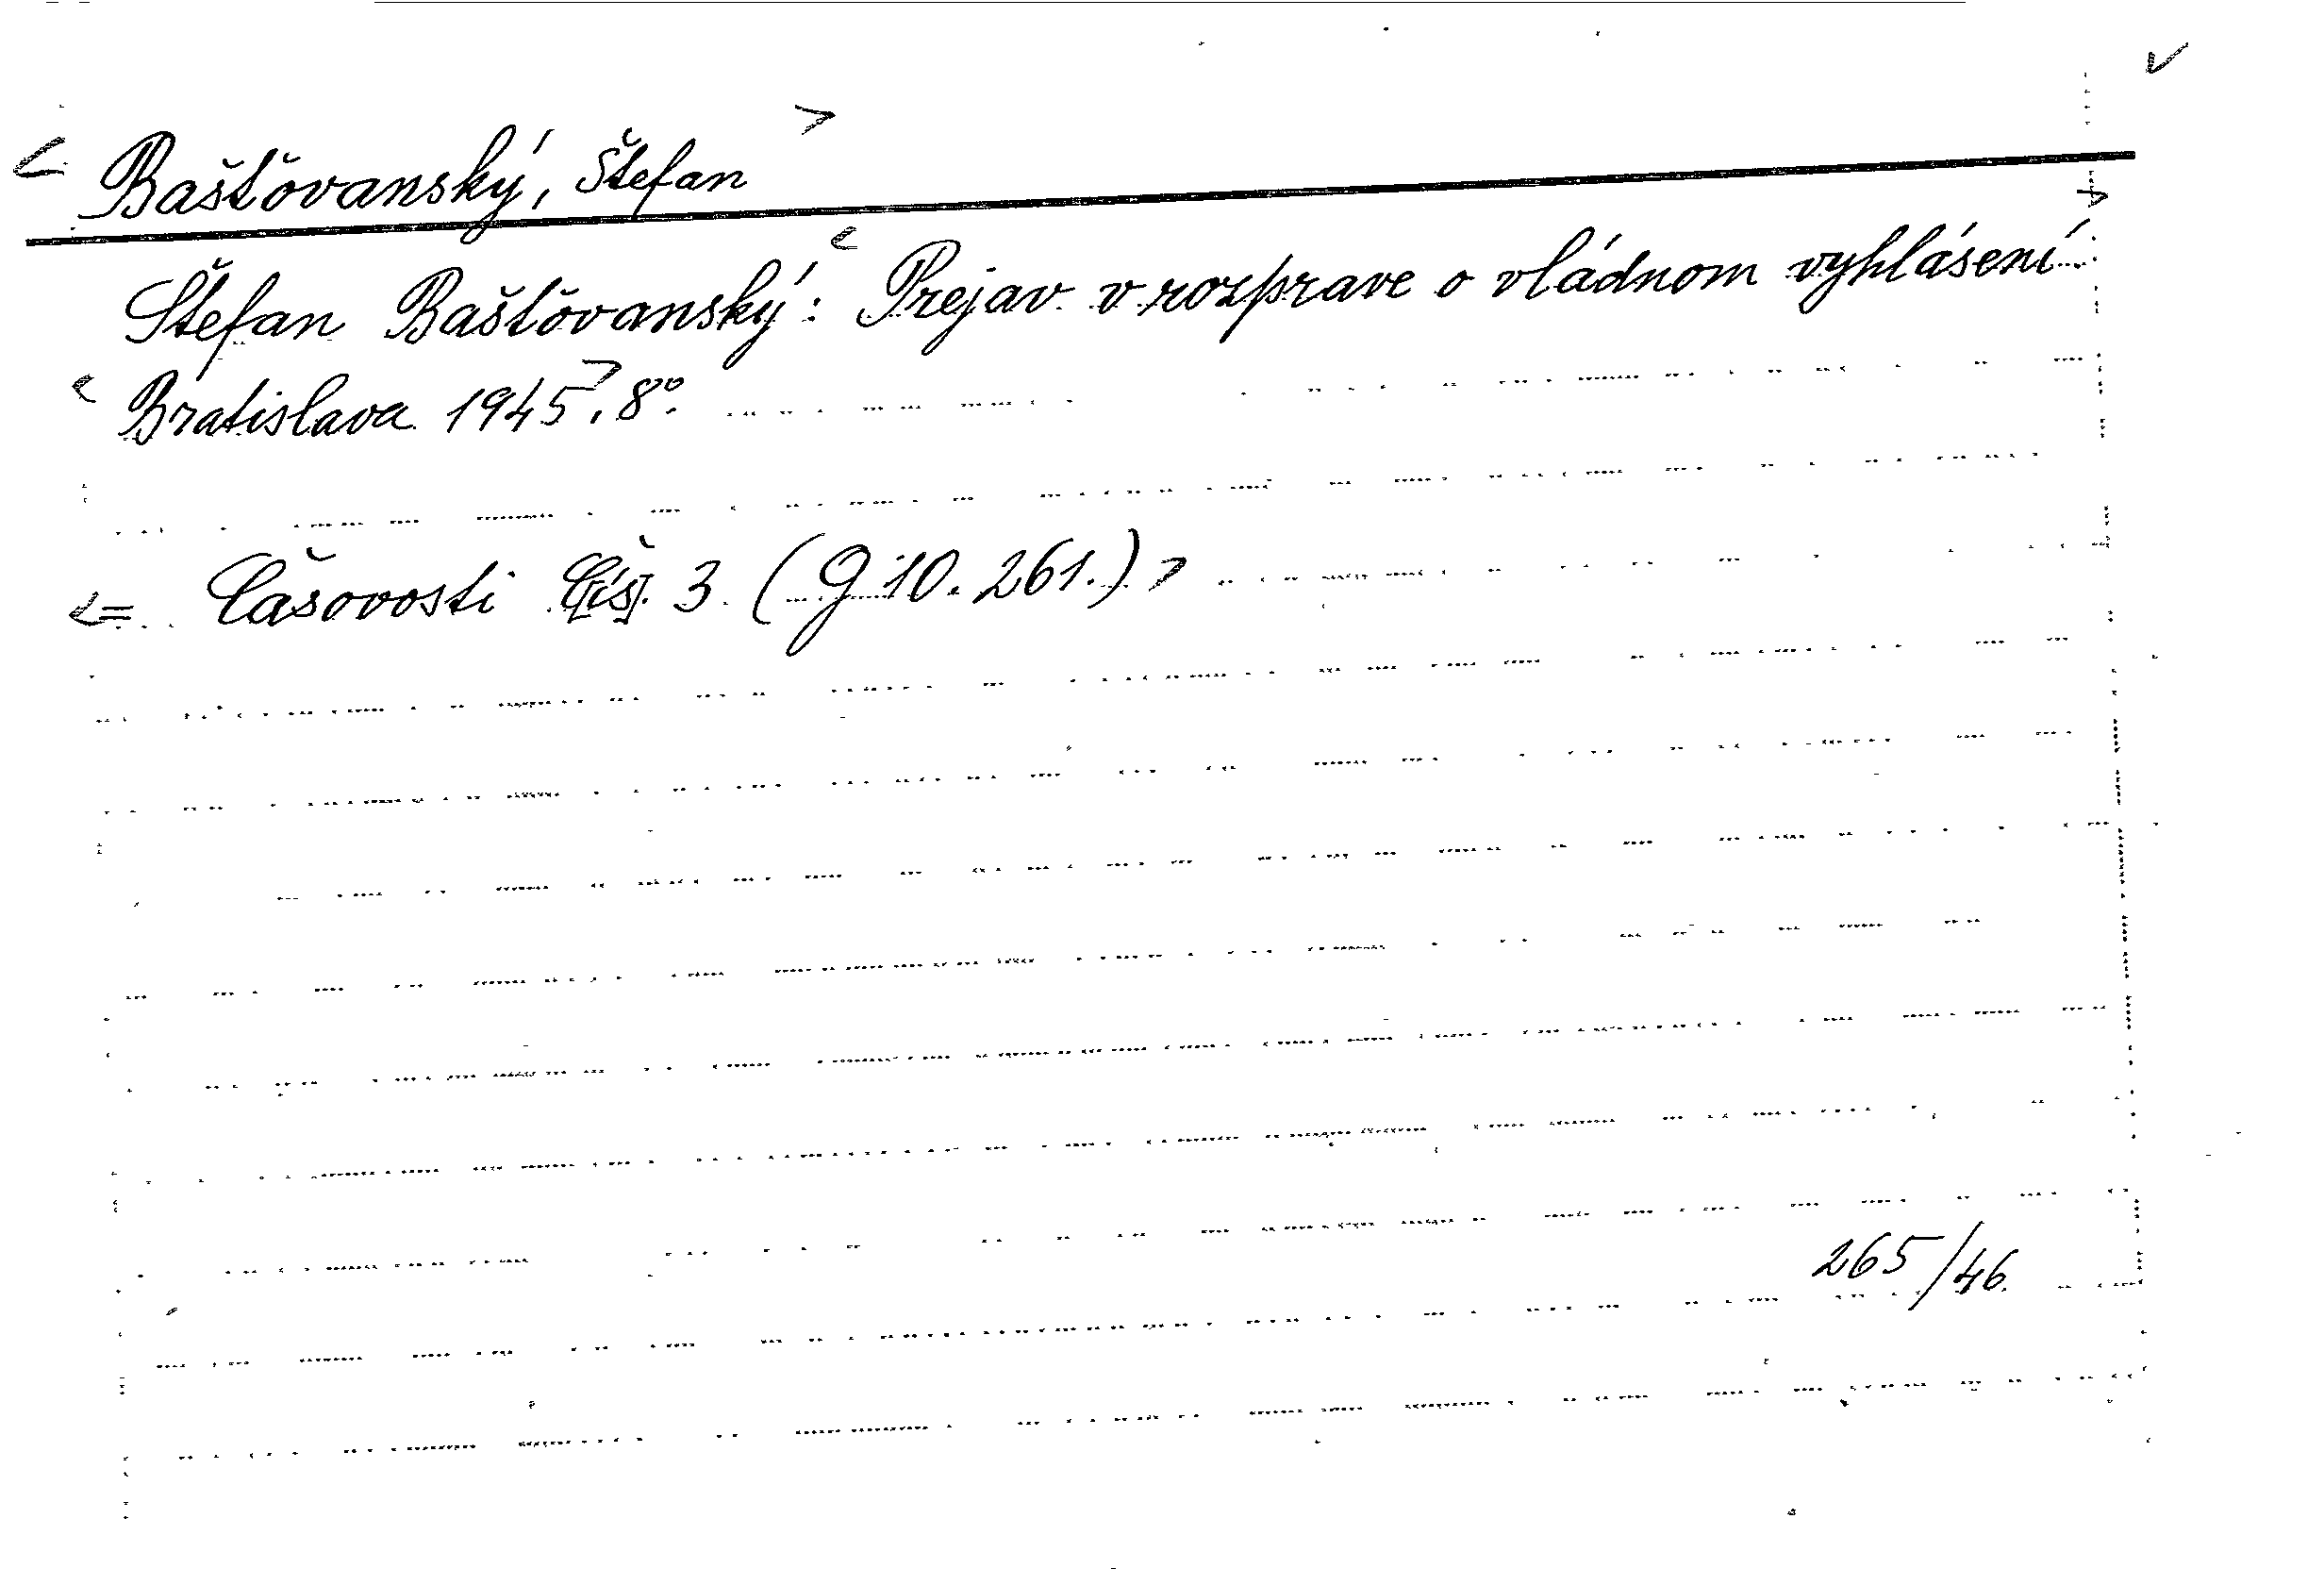 Bašťovanský, Štefan
Štefan Bašťovanský: Prejav v rozprave o vládnom vyhlásení
Bratislava 1945, 8°.
= Časovosti Čís. 3 (G 10.261.)
265/46.